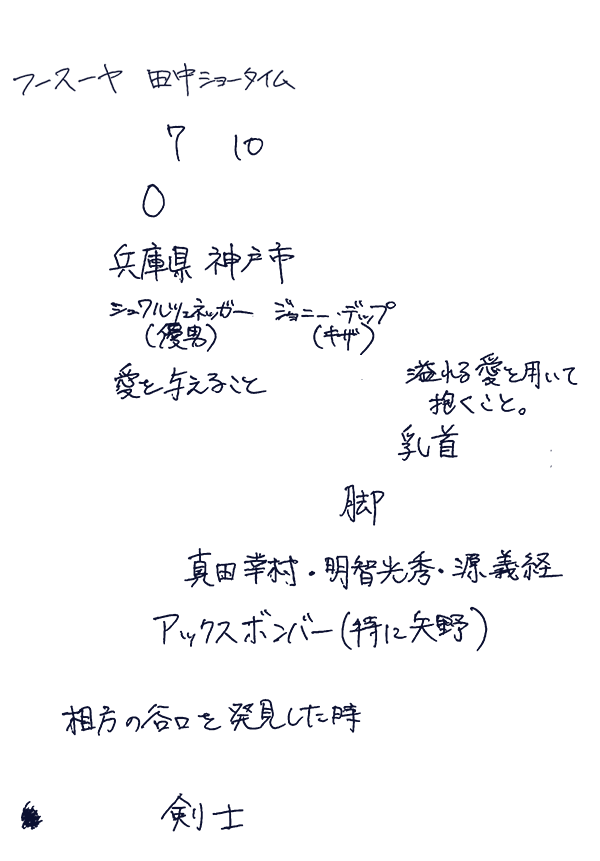 フースーヤ 田中ショータイム
7 10
0
兵庫県 神戸市
シュワルツェネッガー ジョニー・デップ
(優男) (キザ)
愛を与えること 溢れる愛を用いて
抱くこと。
乳首
脚
真田幸村・明智光秀・源義経
アックスボンバー(特に矢野)
相方の谷口を発見した時
剣士